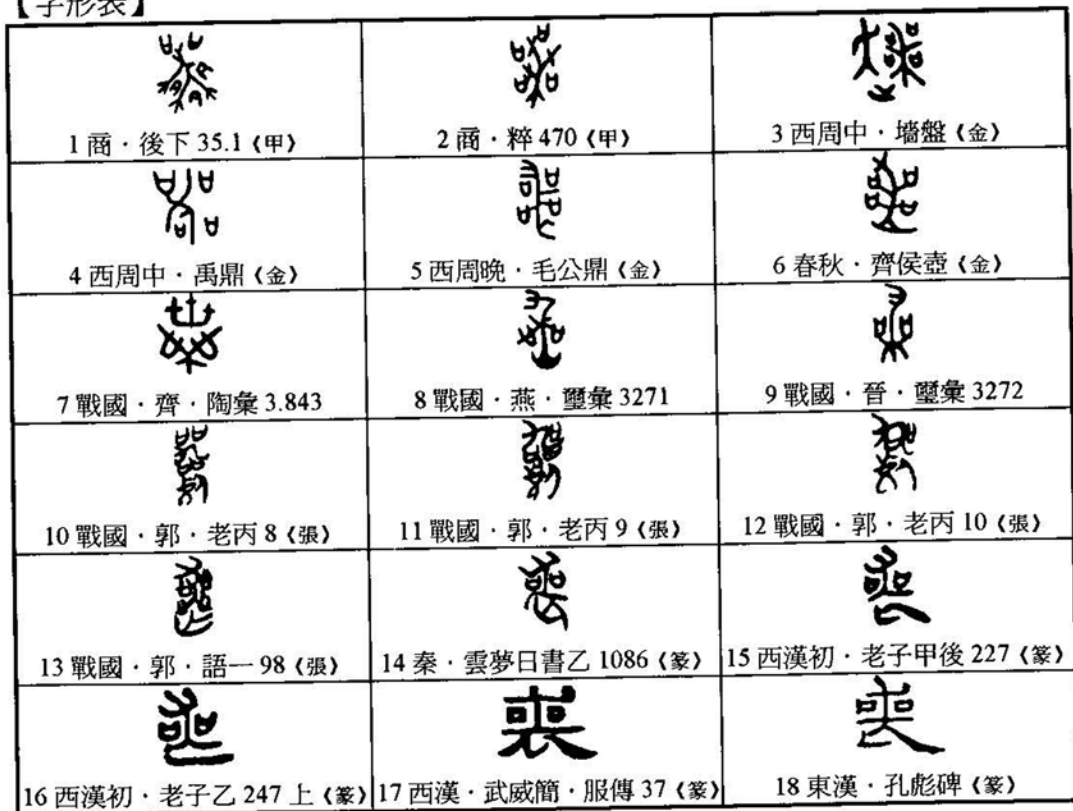 【字形表】
1 商‧後下 35.1《甲》
2 商‧粹 470《甲》
3 西周中‧墻盤《金》
4 西周中‧禹鼎《金》
5 西周晚‧毛公鼎《金》
6 春秋‧齊侯壺《金》
7 戰國‧齊‧陶彙 3.843
8 戰國‧燕‧璽彙 3271
9 戰國‧晉‧璽彙 3272
10 戰國‧郭‧老丙 8《張》
11 戰國‧郭‧老丙 9《張》
12 戰國‧郭‧老丙 10《張》
13 戰國‧郭‧語一 98《張》
14 秦‧雲夢日書乙 1086《篆》
15 西漢初‧老子甲後 227《篆》
16 西漢初‧老子乙 247 上《篆》
17 西漢‧武威簡‧服傳 37《篆》
18 東漢‧孔彪碑《篆》